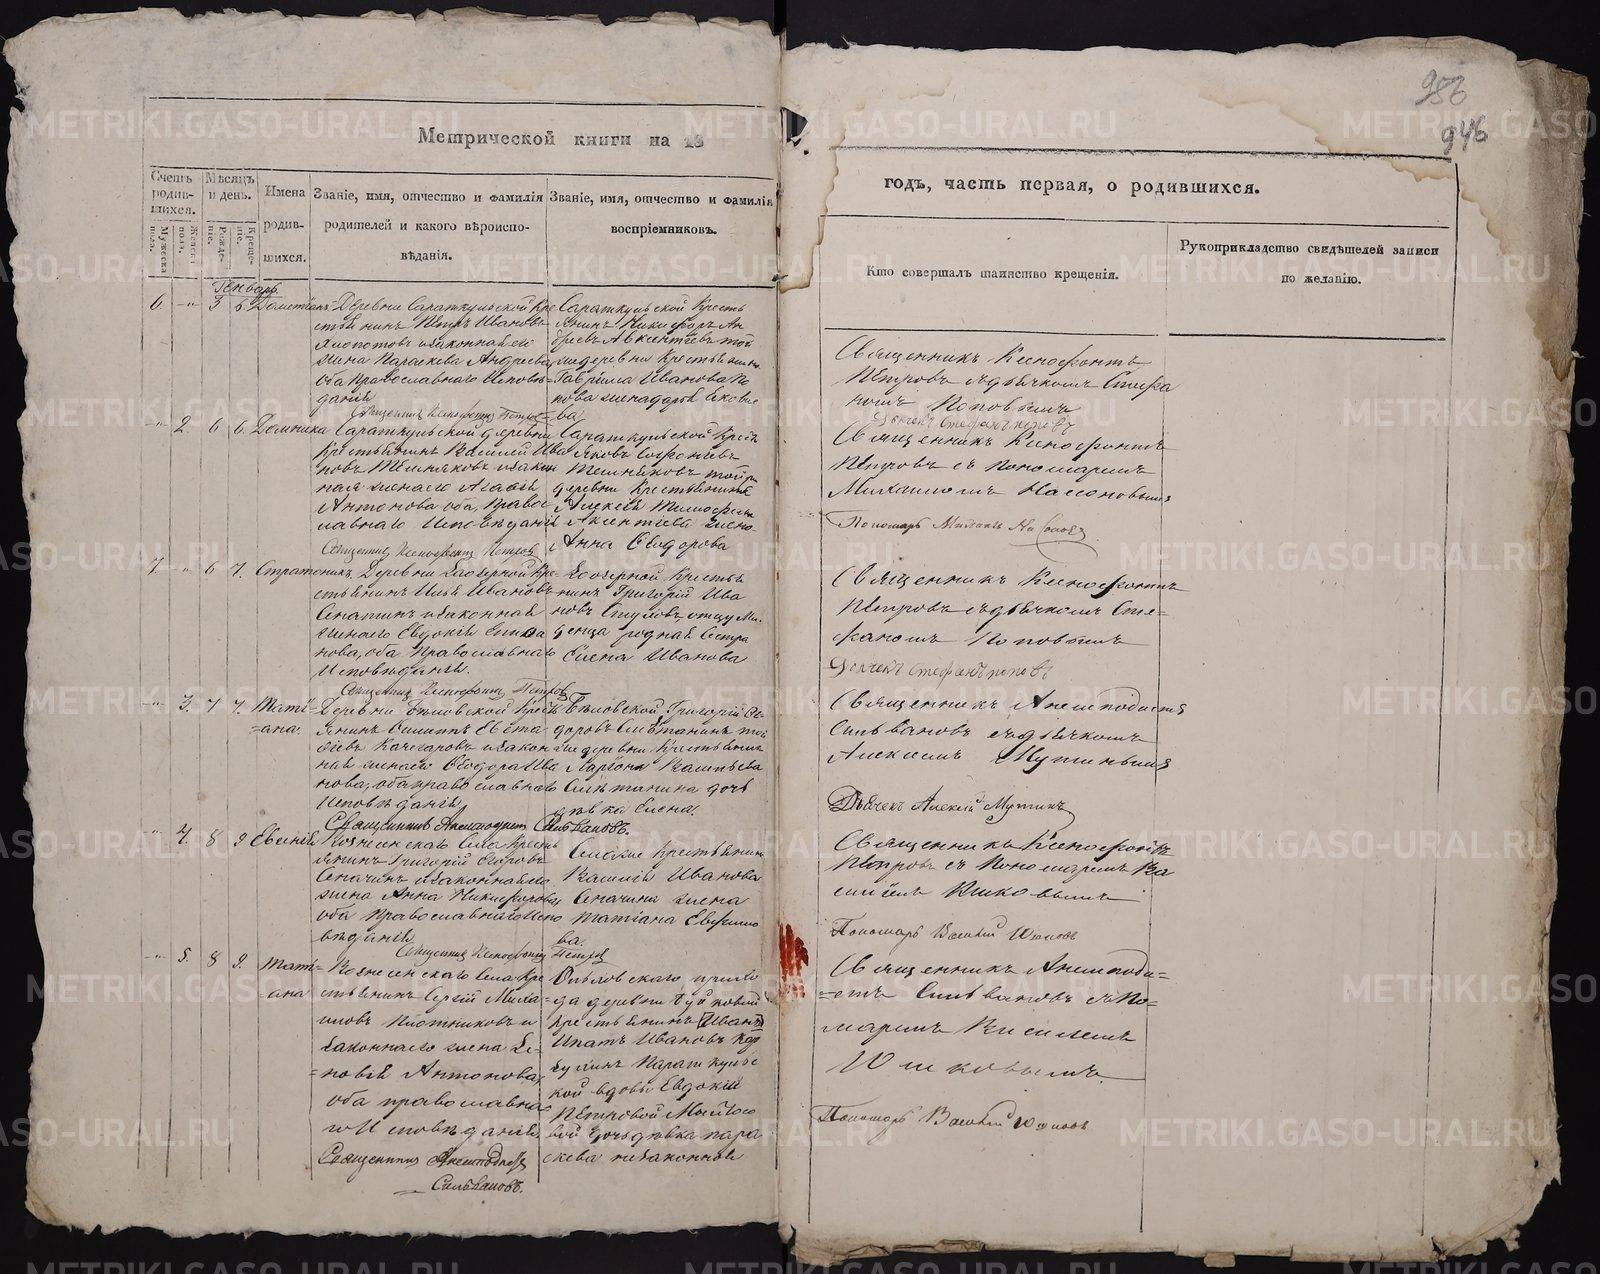 986
946
Метрической книги на 18
годъ, часть первая, о родившихся.
Счетъ родив-шихся.
Мужеска пола.
Женска пола.
Мѣсяцъ и день.
Рожде-ніе.
Креще-ніе.
Имена родив-шихся.
Званіе, имя, отчество и фамилія родителей и какого вѣроиспо-вѣданія.
Званіе, имя, отчество и фамилія воспріемниковъ.
Кто совершалъ таинство крещенія.
Рукоприкладство свидѣтелей записи по желанію.
Генварь
6 -"- 3 6.
Деревни Сараткульской Кре
стьянинъ Петръ Ивановъ
и законная его
жена Параскева Андреева
оба Православнаго Исповѣ-
данія
Священникъ Ксенофонтъ Петров
Сараткульской Кресть
янинъ Никифоръ Ан
дреевъ Авксентьевъ той
же деревни Крестьянина
Гавріила Иванова По
пова жена
Священникъ Ксенофонтъ
Петровъ съ дьячкомъ Стефа
номъ Поповымъ
Дьячекъ Стефанъ Поповъ
-"- 2 6 6. Домника
Сараткульской деревни
Крестьянинъ Василей Ива
новъ Темниковъ и закон
ная жена его Агафія
Антонова оба Правос
лавнаго Исповѣданія
Священникъ Ксенофонтъ Петров
Сараткульской Крест
Яковъ
Темниковъ той
деревни Крестьянина
Алексѣя
жена
Анна Ѳеодорова
Священникъ Ксенофонтъ
Петровъ съ Пономаремъ
Михаиломъ Насоновымъ
Пономарь Михаилъ Насонов
7. " 6 7. Стратоникъ
Деревни Заозерной Кре-
стьянинъ Илья Ивановъ
и законная
жена его Евдокія
нова, оба Православнаго
Исповѣданія.
Священникъ Ксенофонтъ Петров
Заозерной Кресть
нинъ Григорій Ива
новъ отцу Мла
денца родная Сестра
Елена Иванова
Священникъ Ксенофонтъ
Петровъ съ дьячкомъ Сте=
фаномъ Поповымъ
Дьячекъ Стефанъ Поповъ
-"- 3. 7 7. Тать=
=ана.
Деревни Бѣловской Кресть
янинъ Филиппъ Евста
фіевъ Качегаровъ и закон
ная жена его Ѳеодора Ива
нова, оба православнаго
Исповѣданія
Священникъ Анемподистъ Сильвановъ.
Бѣловской Григорій Ѳе
доровъ Смѣтанинъ той
же деревни Крестьянина
Ларіона Васильева
Смѣтанина дочь
дѣвка Елена.
Священникъ Анемподистъ
Сильвановъ съ дьячкомъ
Алексѣемъ Мутинымъ
Дьячекъ Алексѣй Мутинъ
" 4. 8 9 Евгенія
Вознесенскаго Села Кресть
янинъ Григорій Егоровъ
Сначинъ и законная его
жена Анна Никифорова
оба Православнаго Испо
вѣданія
Священникъ Ксенофонтъ Петров
Василія Иванова
Сначина жена
Татіана Евфимо
ва.
Священникъ Ксенофонтъ
Петровъ съ Пономаремъ Ва
силіемъ Юшковымъ
Пономарь Василій Юшковъ
-"- 5. 8 9. Тать=
ана
Вознесенскаго Села Кре
стьянинъ Сергій Миха
иловъ Плотниковъ и
законная его жена Зе-
=новія Антонова,
оба православна
го Исповѣданія,
Священникъ Анемподистъ
Сильвановъ.
прихо
да деревни
Крестьянинъ Иванъ
Ипатъ Ивановъ
кой вдовы Евдокіи
Петровой
вой дочь дѣвка Пара
скева незаконная
Священникъ Анемподи=
=стъ Сильвановъ съ По=
маремъ Василіемъ
Юшковымъ.
Пономарь Василій Юшковъ
METRIKI.GASO-URAL.RU